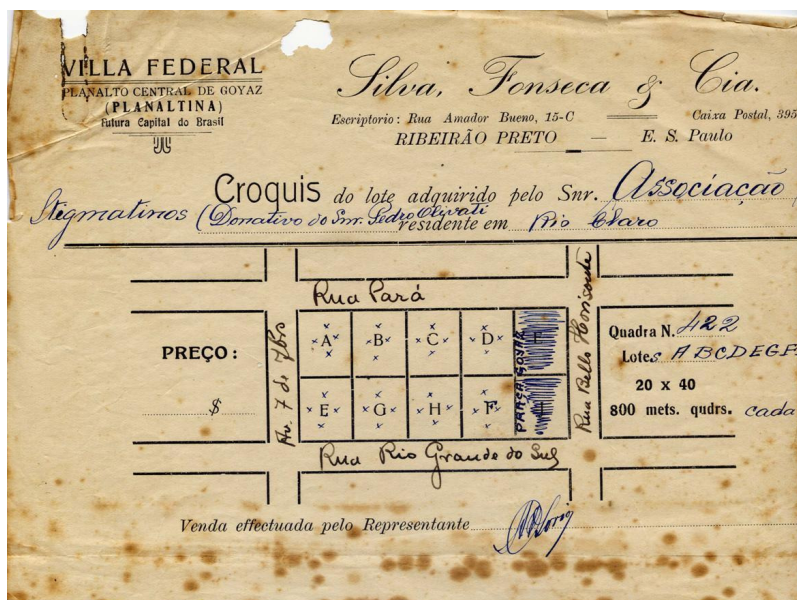 VILLA FEDERAL
PLANALTO CENTRAL DE GOYAZ
(PLANALTINA)
Futura Capital do Brasil
Silva, Fonseca & Cia.
Escriptorio: Rua Amador Bueno, 15-C Caixa Postal, 395
RIBEIRÃO PRETO — E. S. Paulo
Croquis do lote adquirido pelo Snr. Associação
Stigmatinos (Donativo do Snr. Pedro Olivati
residente em Rio Claro
Rua Pará
Rua Bello Horisonte
Av. 7 de 7bro
PREÇO:
$
A B C D E
PRAÇA GOYAZ
E G H F I
Quadra N. 422
Lotes A B C D E G F
20 x 40
800 mets. qudrs. cada
Rua Rio Grande do Sul
Venda effectuada pelo Representante